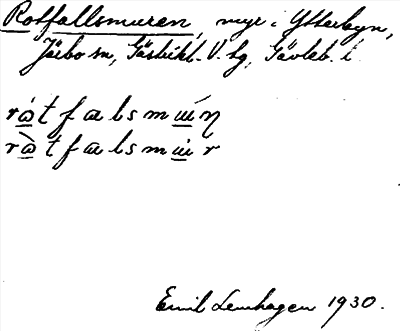 Rotfallsmuren, myr i Ytterbyn,
Järbo sn, Gästrikl. V. tg, Gävleb. l.
rὼtfalsmɯ́η
rὼtfalsmɯ̀r
Emil Lenhagen 1930.